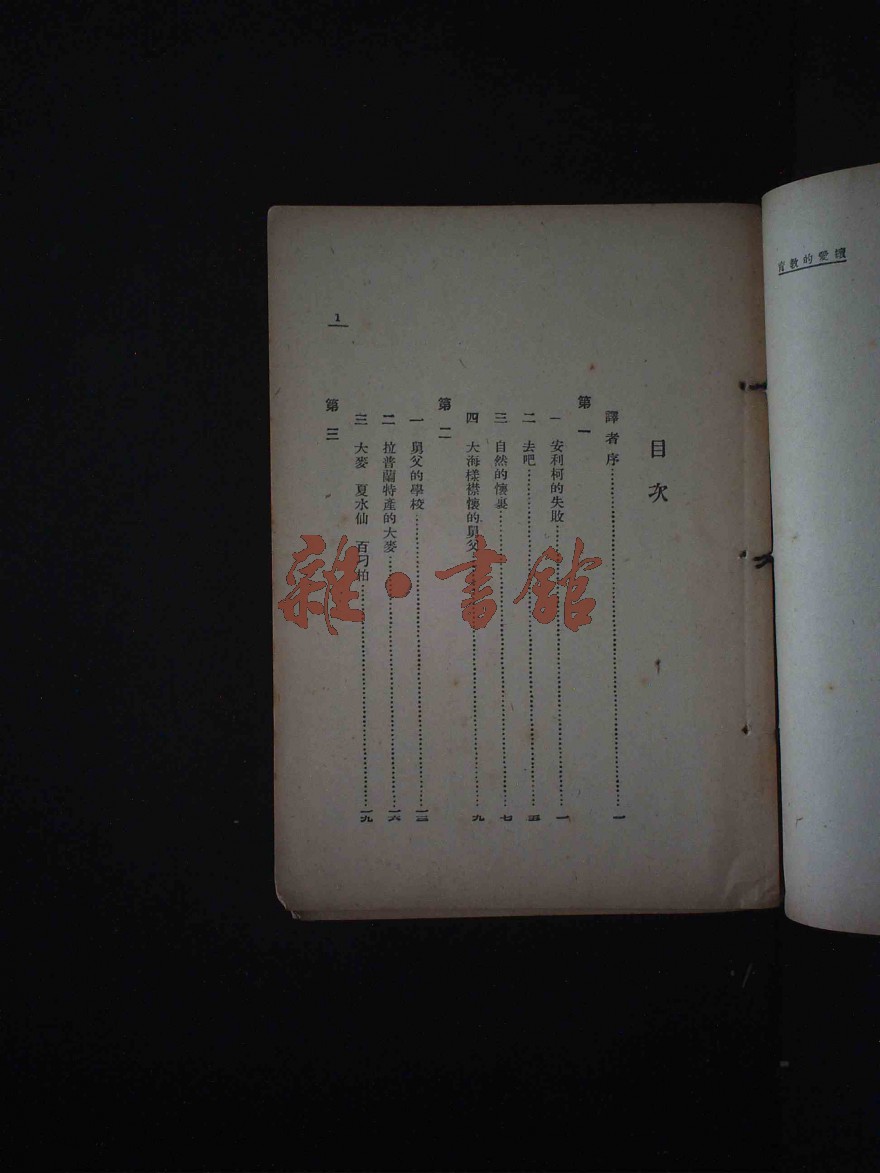 續愛的教育
目次
譯者序……一
第一
一 安利柯的失敗……一
二 去吧……五
三 自然的懷裏……七
四 大海樣襟懷的舅父……九
第二
一 舅父的學校……一三
二 拉普蘭特產的大麥……一六
三 大麥 夏水仙 百刁柏……一九
第三
1
雜·書館